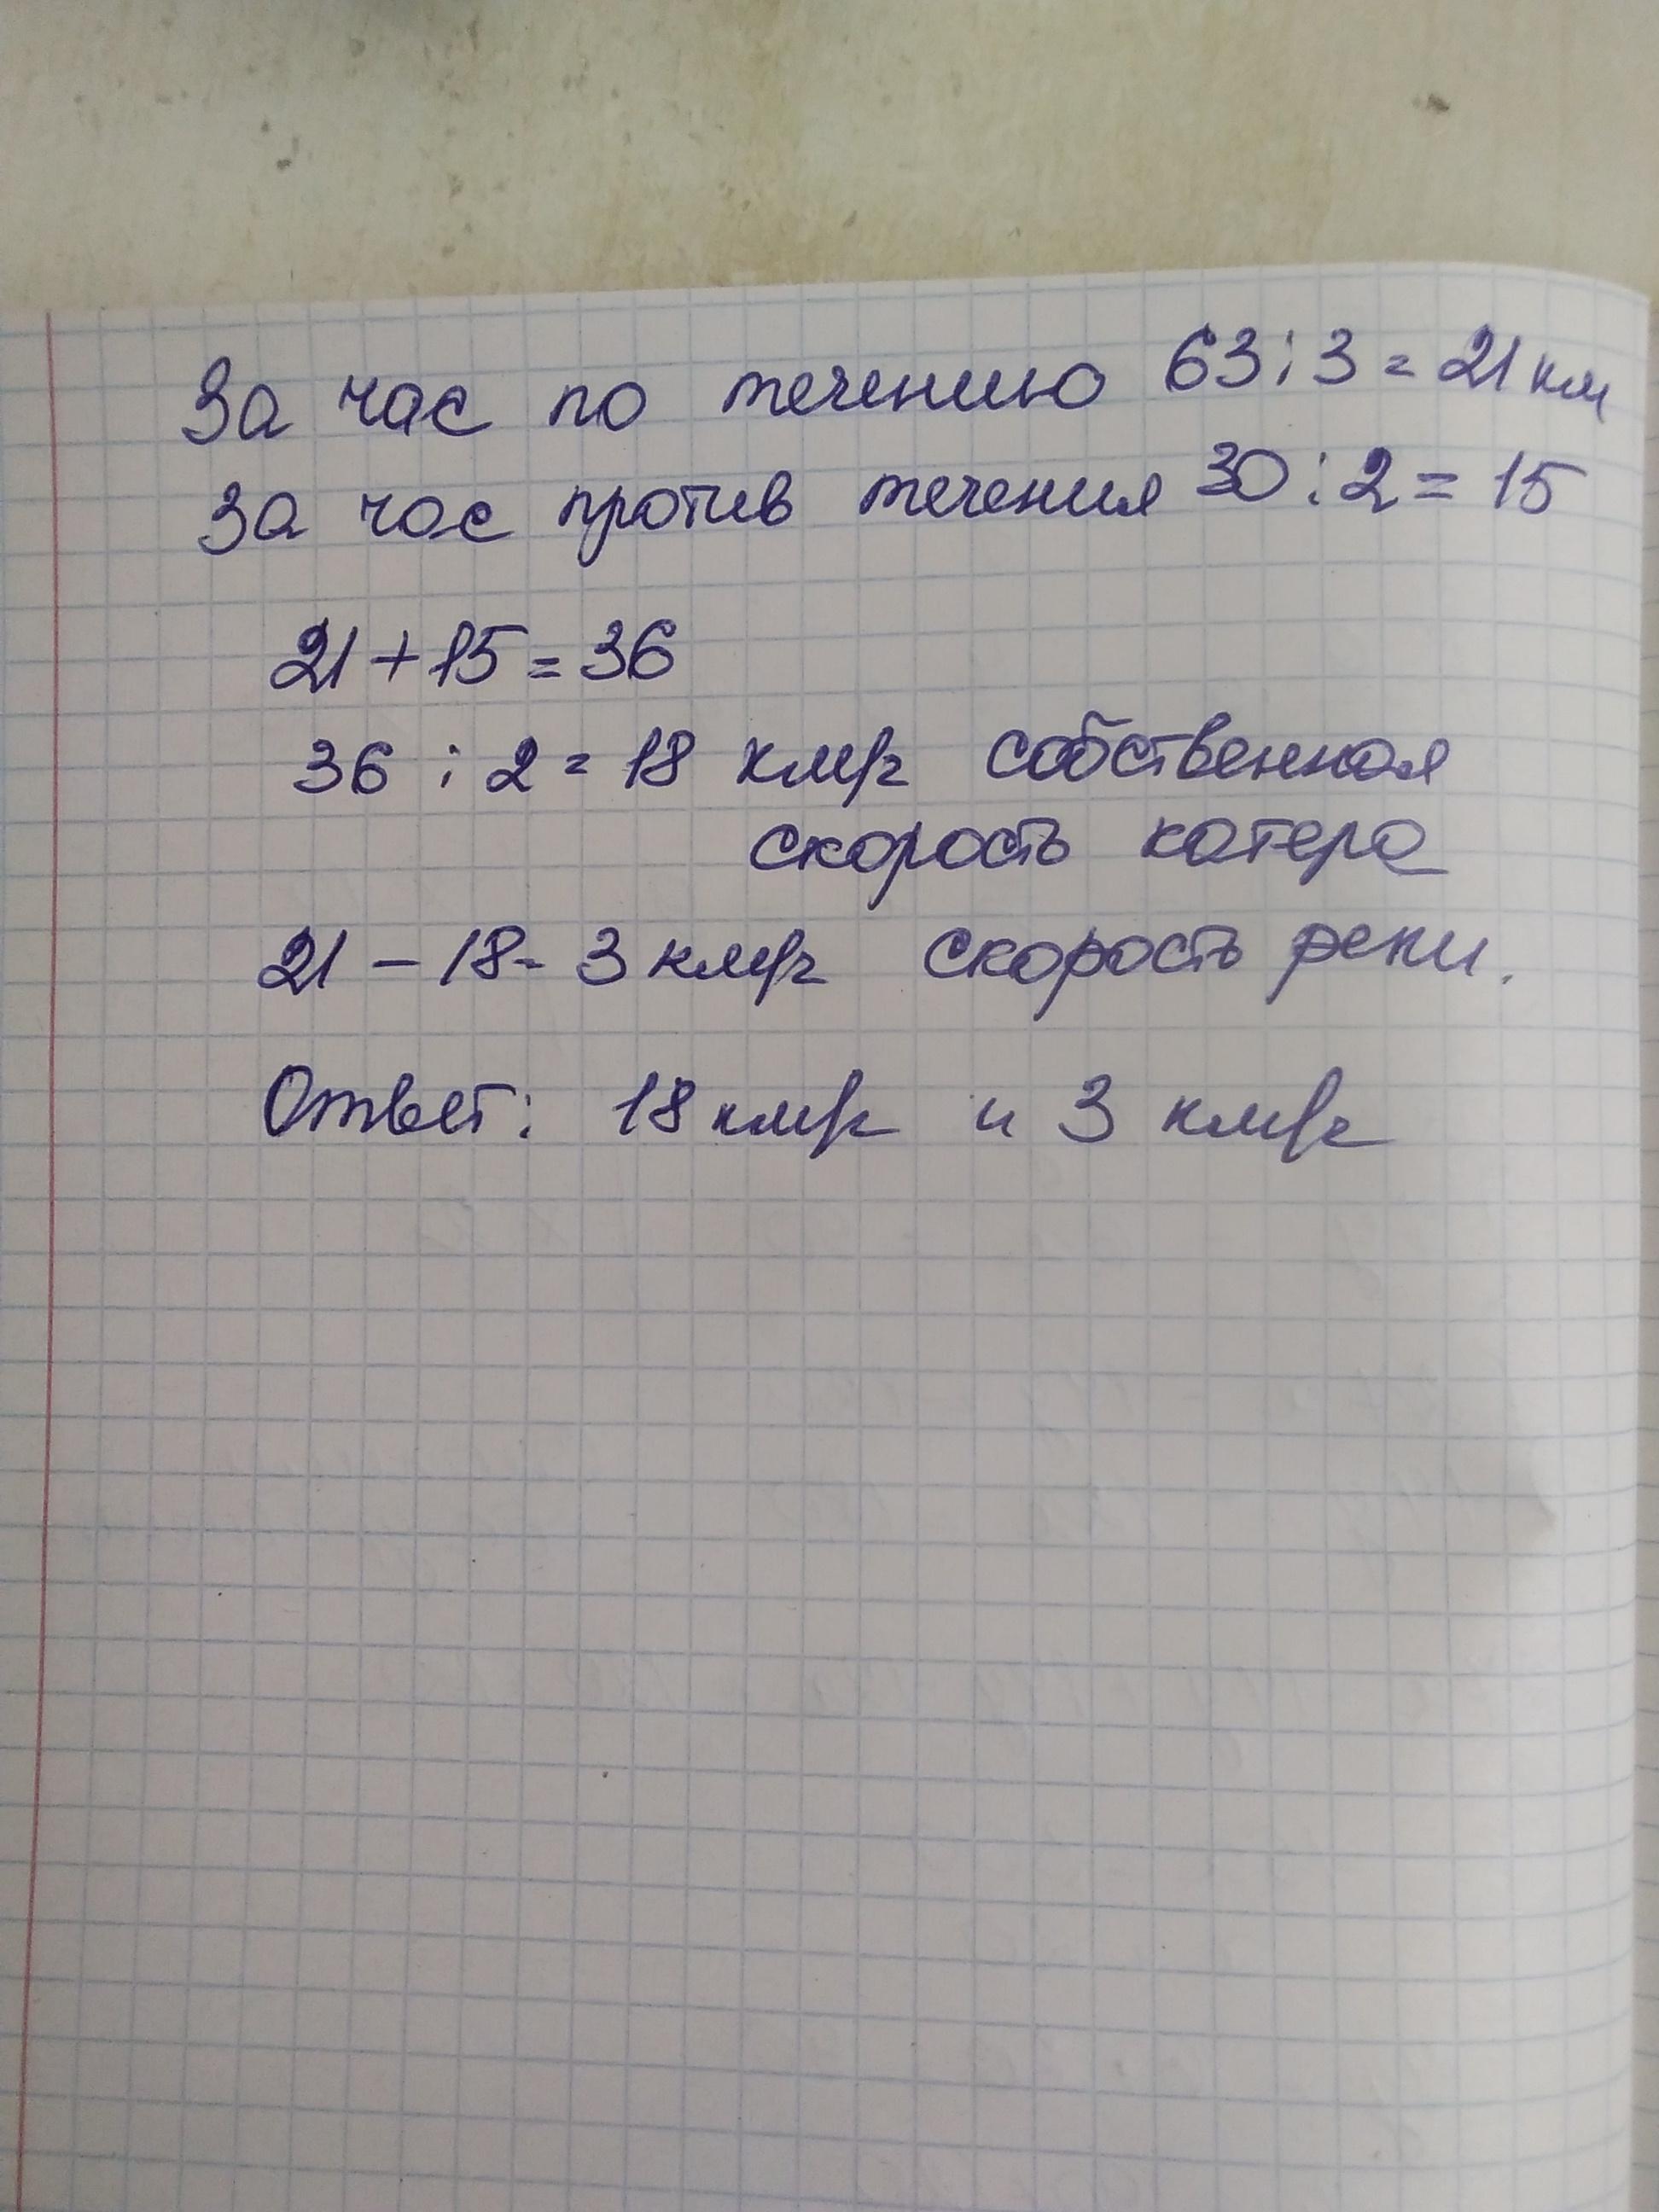 За час по течению 63 : 3 = 21 км
За час против течения 30 : 2 = 15
21 + 15 = 36
36 : 2 = 18 км/ч собственная
скорость катера
21 - 18 = 3 км/ч скорость реки.
Ответ: 18 км/ч и 3 км/ч